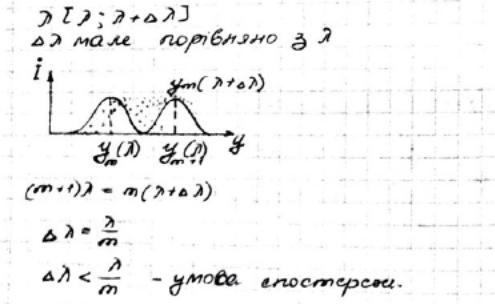 λ [λ; λ+Δλ]
Δλ мале порівняно з λ
i
y_m(λ+Δλ)
y_m(λ) y_{m+1}(λ) y
(m+1)λ = m(λ+Δλ)
Δλ = λ/m
Δλ < λ/m - умова спостереж.